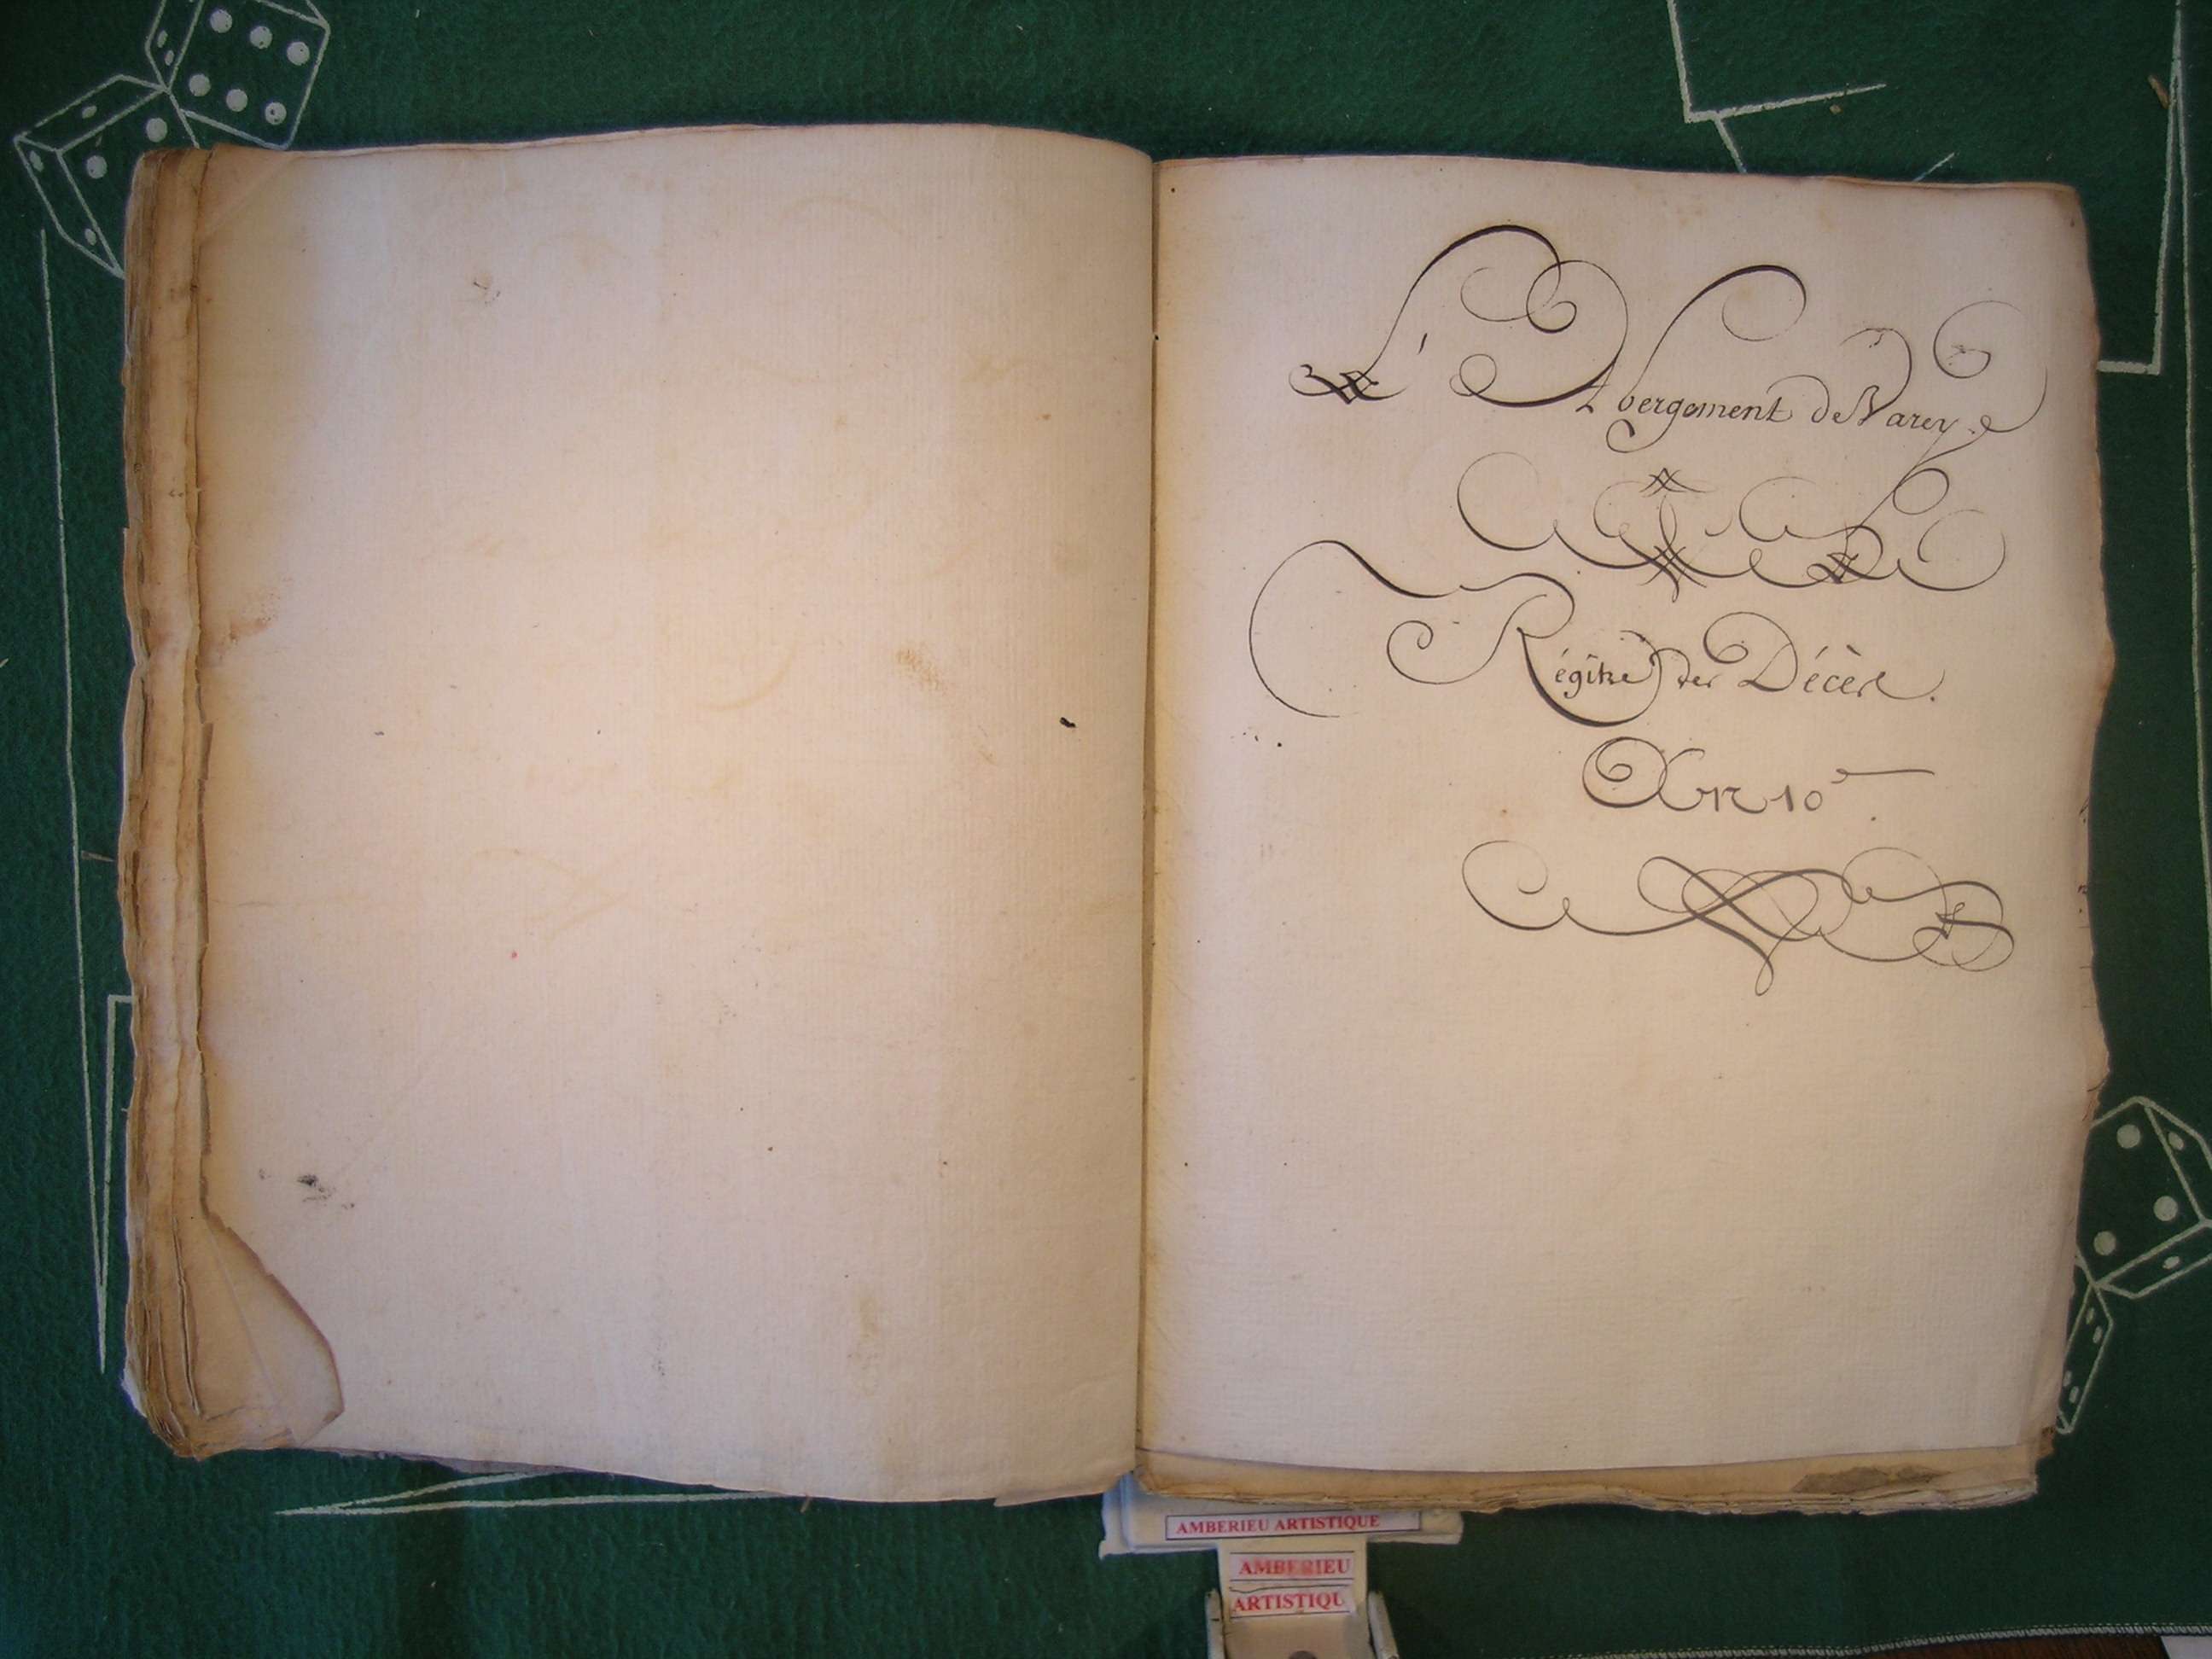 L'Abergement de Varey
Régître des Décès.
An 10e
AMBERIEU ARTISTIQUE
AMBERIEU
ARTISTIQU